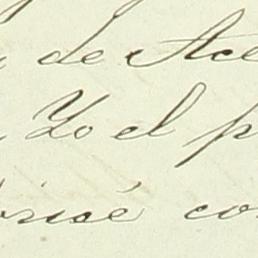 de Ace
Yo el p
risé co